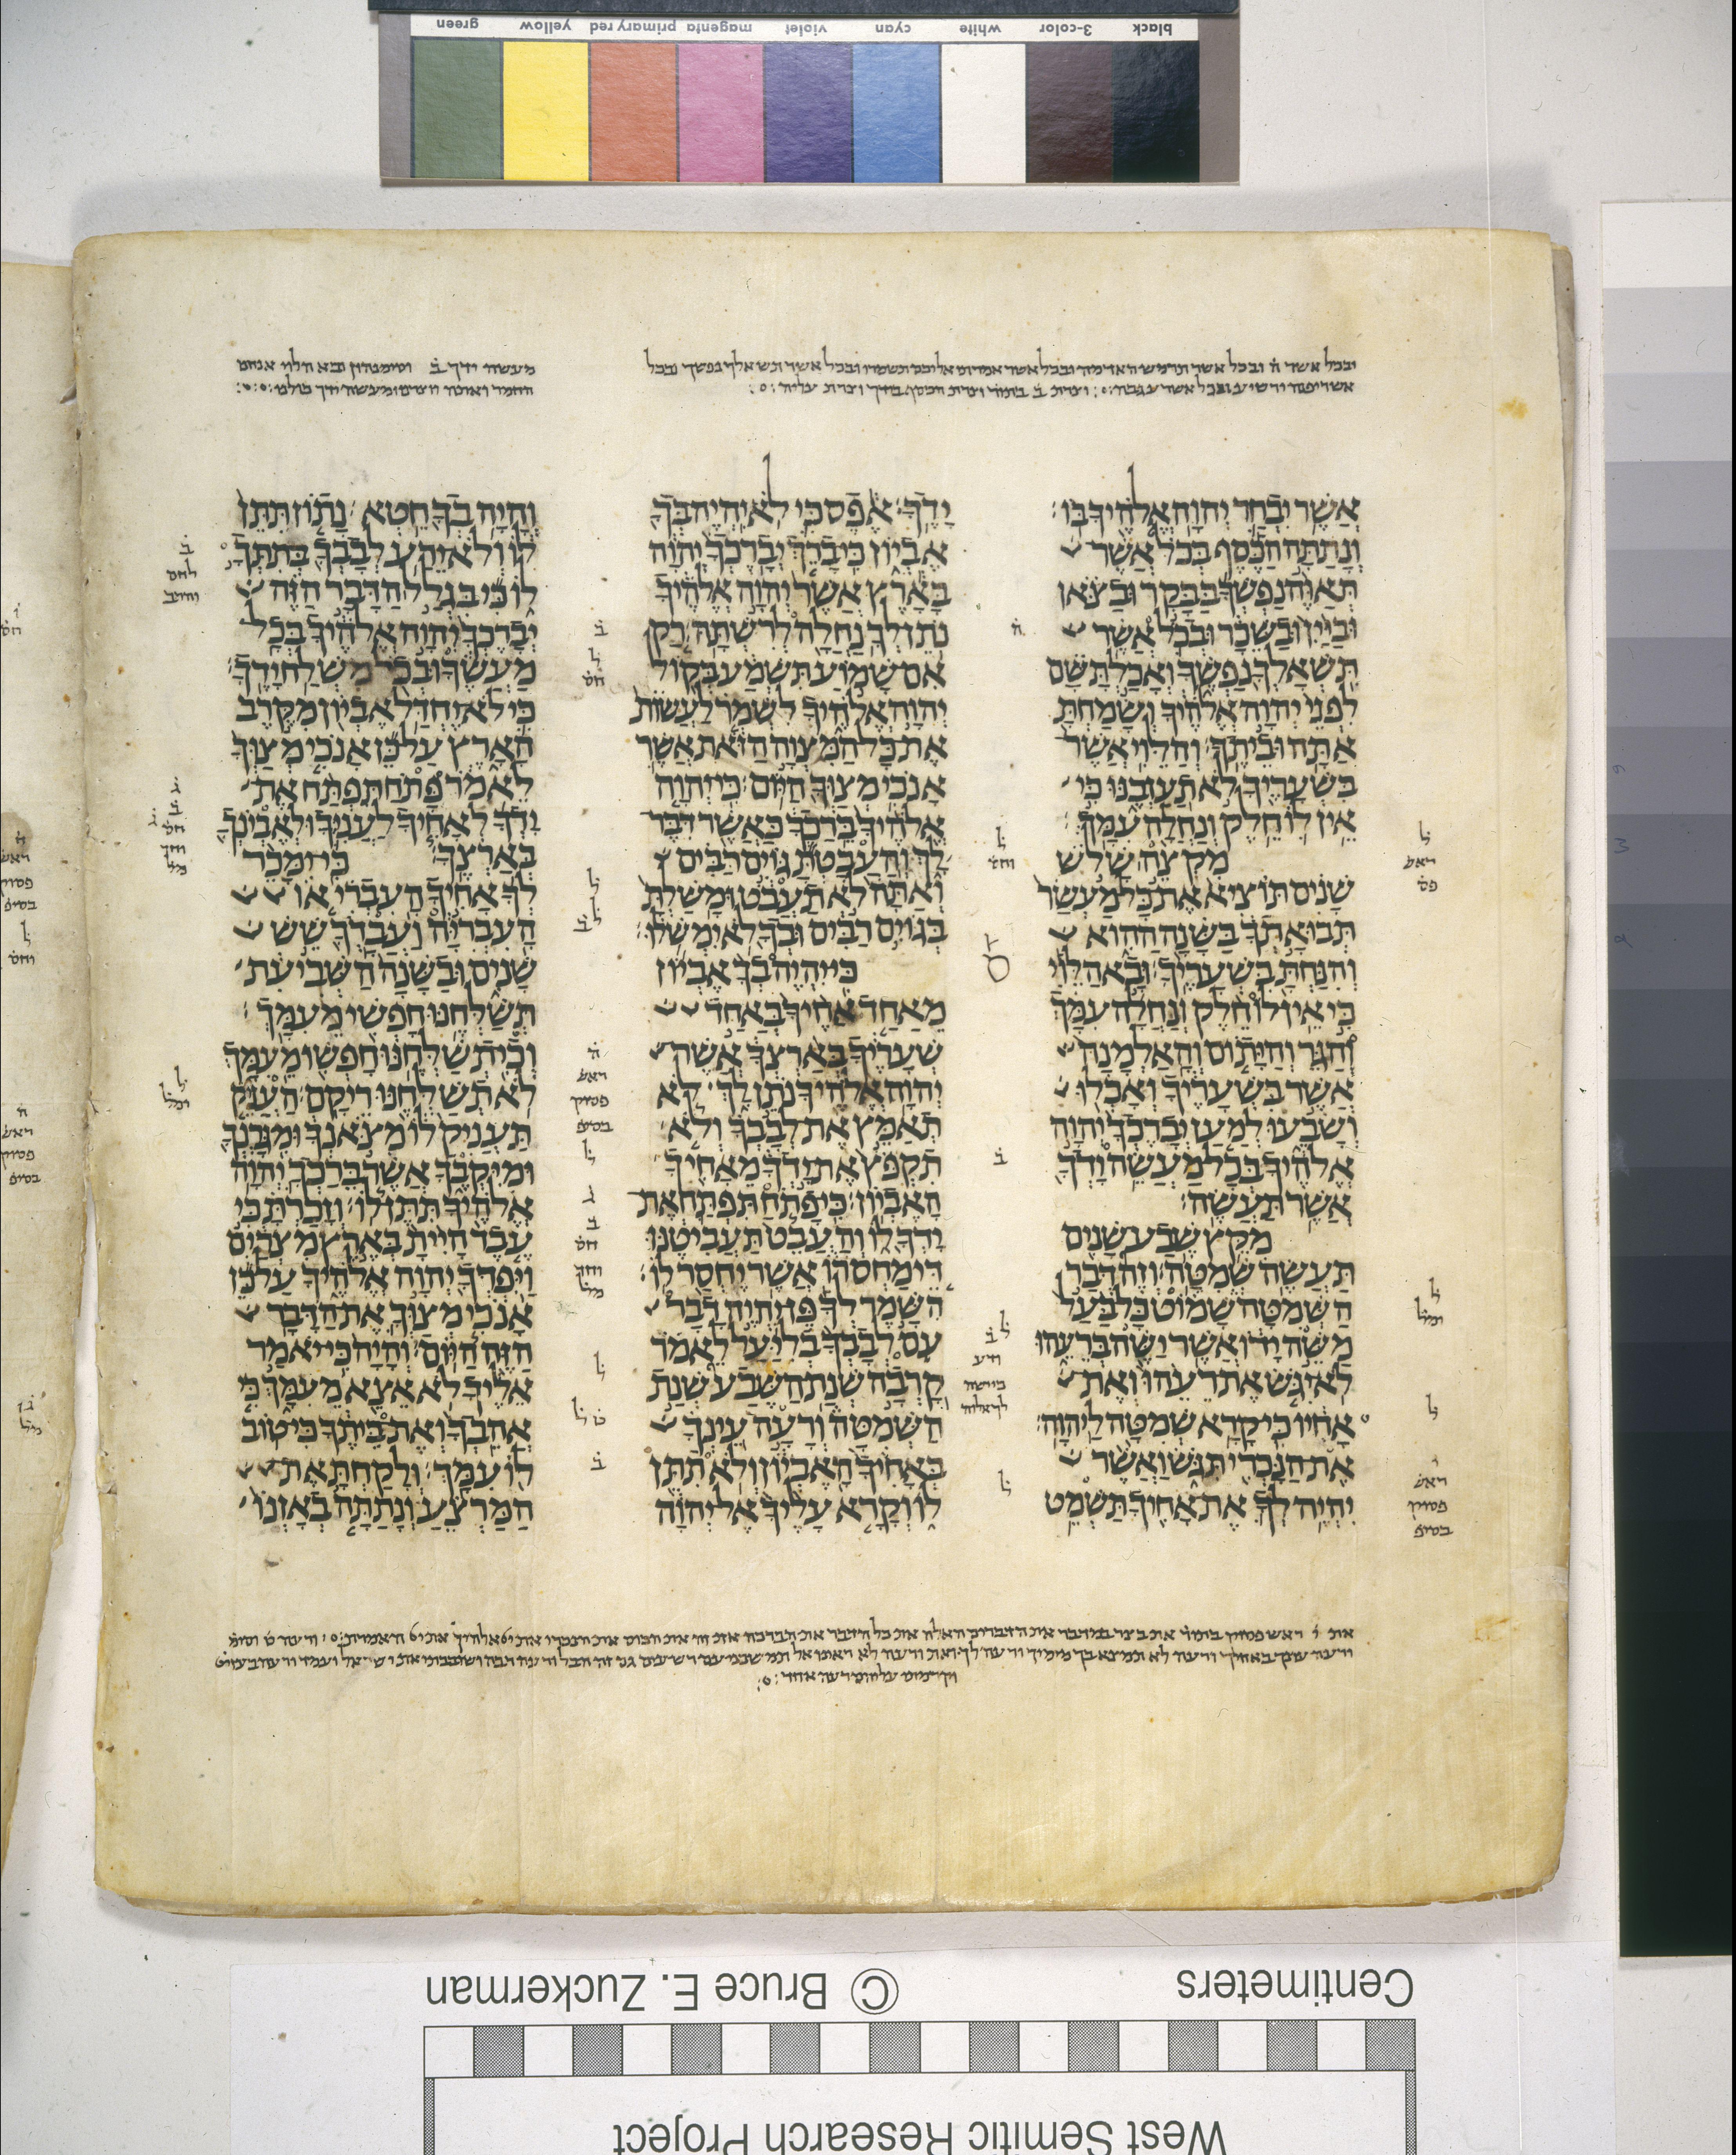 ובכל אשר ה ובכל אשר תרמש האדמה ובכל אשר אמרתי אליכם תשמרו ובכל אשר תשאלך נפשך ובכל
אשר יפנה ירשיע ובכל אשר עגבה וצרת ב בתור וצרת הכסף בידך וצרת עליה
מעשה ידך ב וסימנהון ובא הלוי
אֲשֶׁר יִבְחַר יְהוָה אֱלֹהֶיךָ בּוֹ׃
וְנָתַתָּה הַכֶּסֶף בְּכֹל אֲשֶׁר
תְּאַוֶּה נַפְשְׁךָ בַּבָּקָר וּבַצֹּאן
וּבַיַּיִן וּבַשֵּׁכָר וּבְכֹל אֲשֶׁר
תִּשְׁאָלְךָ נַפְשֶׁךָ וְאָכַלְתָּ שָּׁם
לִפְנֵי יְהוָה אֱלֹהֶיךָ וְשָׂמַחְתָּ
אַתָּה וּבֵיתֶךָ׃ וְהַלֵּוִי אֲשֶׁר
בִּשְׁעָרֶיךָ לֹא תַעַזְבֶנּוּ כִּי
אֵין לוֹ חֵלֶק וְנַחֲלָה עִמָּךְ׃
מִקְצֵה שָׁלֹשׁ
שָׁנִים תּוֹצִיא אֶת כָּל מַעְשַׂר
תְּבוּאָתְךָ בַּשָּׁנָה הַהִוא
וְהִנַּחְתָּ בִּשְׁעָרֶיךָ׃ וּבָא הַלֵּוִי
כִּי אֵין לוֹ חֵלֶק וְנַחֲלָה עִמָּךְ
וְהַגֵּר וְהַיָּתוֹם וְהָאַלְמָנָה
אֲשֶׁר בִּשְׁעָרֶיךָ וְאָכְלוּ
וְשָׂבֵעוּ לְמַעַן יְבָרֶכְךָ יְהוָה
אֱלֹהֶיךָ בְּכָל מַעֲשֵׂה יָדְךָ
אֲשֶׁר תַּעֲשֶׂה׃
מִקֵּץ שֶׁבַע שָׁנִים
תַּעֲשֶׂה שְׁמִטָּה׃ וְזֶה דְּבַר
הַשְּׁמִטָּה שָׁמוֹט כָּל בַּעַל
מַשֵּׁה יָדוֹ אֲשֶׁר יַשֶּׁה בְּרֵעֵהוּ
לֹא יִגֹּשׂ אֶת רֵעֵהוּ וְאֶת
אָחִיו כִּי קָרָא שְׁמִטָּה לַיהוָה׃
אֶת הַנָּכְרִי תִּגֹּשׂ וַאֲשֶׁר
יִהְיֶה לְךָ אֶת אָחִיךָ תַּשְׁמֵט
יָדֶךָ׃ אֶפֶס כִּי לֹא יִהְיֶה בְּךָ
אֶבְיוֹן כִּי בָרֵךְ יְבָרֶכְךָ יְהוָה
בָּאָרֶץ אֲשֶׁר יְהוָה אֱלֹהֶיךָ
נֹתֵן לְךָ נַחֲלָה לְרִשְׁתָּהּ׃ רַק
אִם שָׁמוֹעַ תִּשְׁמַע בְּקוֹל
יְהוָה אֱלֹהֶיךָ לִשְׁמֹר לַעֲשׂוֹת
אֶת כָּל הַמִּצְוָה הַזֹּאת אֲשֶׁר
אָנֹכִי מְצַוְּךָ הַיּוֹם׃ כִּי יְהוָה
אֱלֹהֶיךָ בֵּרַכְךָ כַּאֲשֶׁר דִּבֶּר
לָךְ וְהַעֲבַטְתָּ גּוֹיִם רַבִּים
וְאַתָּה לֹא תַעֲבֹט וּמָשַׁלְתָּ
בְּגוֹיִם רַבִּים וּבְךָ לֹא יִמְשֹׁלוּ׃
כִּי יִהְיֶה בְךָ אֶבְיוֹן
מֵאַחַד אַחֶיךָ בְּאַחַד
שְׁעָרֶיךָ בְּאַרְצְךָ אֲשֶׁר
יְהוָה אֱלֹהֶיךָ נֹתֵן לָךְ לֹא
תְאַמֵּץ אֶת לְבָבְךָ וְלֹא
תִקְפֹּץ אֶת יָדְךָ מֵאָחִיךָ
הָאֶבְיוֹן׃ כִּי פָתֹחַ תִּפְתַּח אֶת
יָדְךָ לוֹ וְהַעֲבֵט תַּעֲבִיטֶנּוּ
דֵּי מַחְסֹרוֹ אֲשֶׁר יֶחְסַר לוֹ׃
הִשָּׁמֶר לְךָ פֶּן יִהְיֶה דָבָר
עִם לְבָבְךָ בְלִיַּעַל לֵאמֹר
קָרְבָה שְׁנַת הַשֶּׁבַע שְׁנַת
הַשְּׁמִטָּה וְרָעָה עֵינְךָ
בְּאָחִיךָ הָאֶבְיוֹן וְלֹא תִתֵּן
לוֹ וְקָרָא עָלֶיךָ אֶל יְהוָה
וְהָיָה בְךָ חֵטְא׃ נָתוֹן תִּתֵּן
לוֹ וְלֹא יֵרַע לְבָבְךָ בְּתִתְּךָ
לוֹ כִּי בִּגְלַל הַדָּבָר הַזֶּה
יְבָרֶכְךָ יְהוָה אֱלֹהֶיךָ בְּכָל
מַעֲשֶׂךָ וּבְכֹל מִשְׁלַח יָדֶךָ׃
כִּי לֹא יֶחְדַּל אֶבְיוֹן מִקֶּרֶב
הָאָרֶץ עַל כֵּן אָנֹכִי מְצַוְּךָ
לֵאמֹר פָּתֹחַ תִּפְתַּח אֶת
יָדְךָ לְאָחִיךָ לַעֲנִיֶּךָ וּלְאֶבְיֹנְךָ
בְּאַרְצֶךָ׃ כִּי יִמָּכֵר
לְךָ אָחִיךָ הָעִבְרִי אוֹ
הָעִבְרִיָּה וַעֲבָדְךָ שֵׁשׁ
שָׁנִים וּבַשָּׁנָה הַשְּׁבִיעִת
תְּשַׁלְּחֶנּוּ חָפְשִׁי מֵעִמָּךְ׃
וְכִי תְשַׁלְּחֶנּוּ חָפְשִׁי מֵעִמָּךְ
לֹא תְשַׁלְּחֶנּוּ רֵיקָם׃ הַעֲנֵיק
תַּעֲנִיק לוֹ מִצֹּאנְךָ וּמִגָּרְנְךָ
וּמִיִּקְבֶךָ אֲשֶׁר בֵּרַכְךָ יְהוָה
אֱלֹהֶיךָ תִּתֶּן לוֹ׃ וְזָכַרְתָּ כִּי
עֶבֶד הָיִיתָ בְּאֶרֶץ מִצְרַיִם
וַיִּפְדְּךָ יְהוָה אֱלֹהֶיךָ עַל כֵּן
אָנֹכִי מְצַוְּךָ אֶת הַדָּבָר
הַזֶּה הַיּוֹם׃ וְהָיָה כִּי יֹאמַר
אֵלֶיךָ לֹא אֵצֵא מֵעִמָּךְ כִּי
אֲהֵבְךָ וְאֶת בֵּיתֶךָ כִּי טוֹב
לוֹ עִמָּךְ׃ וְלָקַחְתָּ אֶת
הַמַּרְצֵעַ וְנָתַתָּה בְאָזְנוֹ
green yellow primary red magenta violet cyan white 3-color black
Centimeters © Bruce E. Zuckerman
West Semitic Research Project